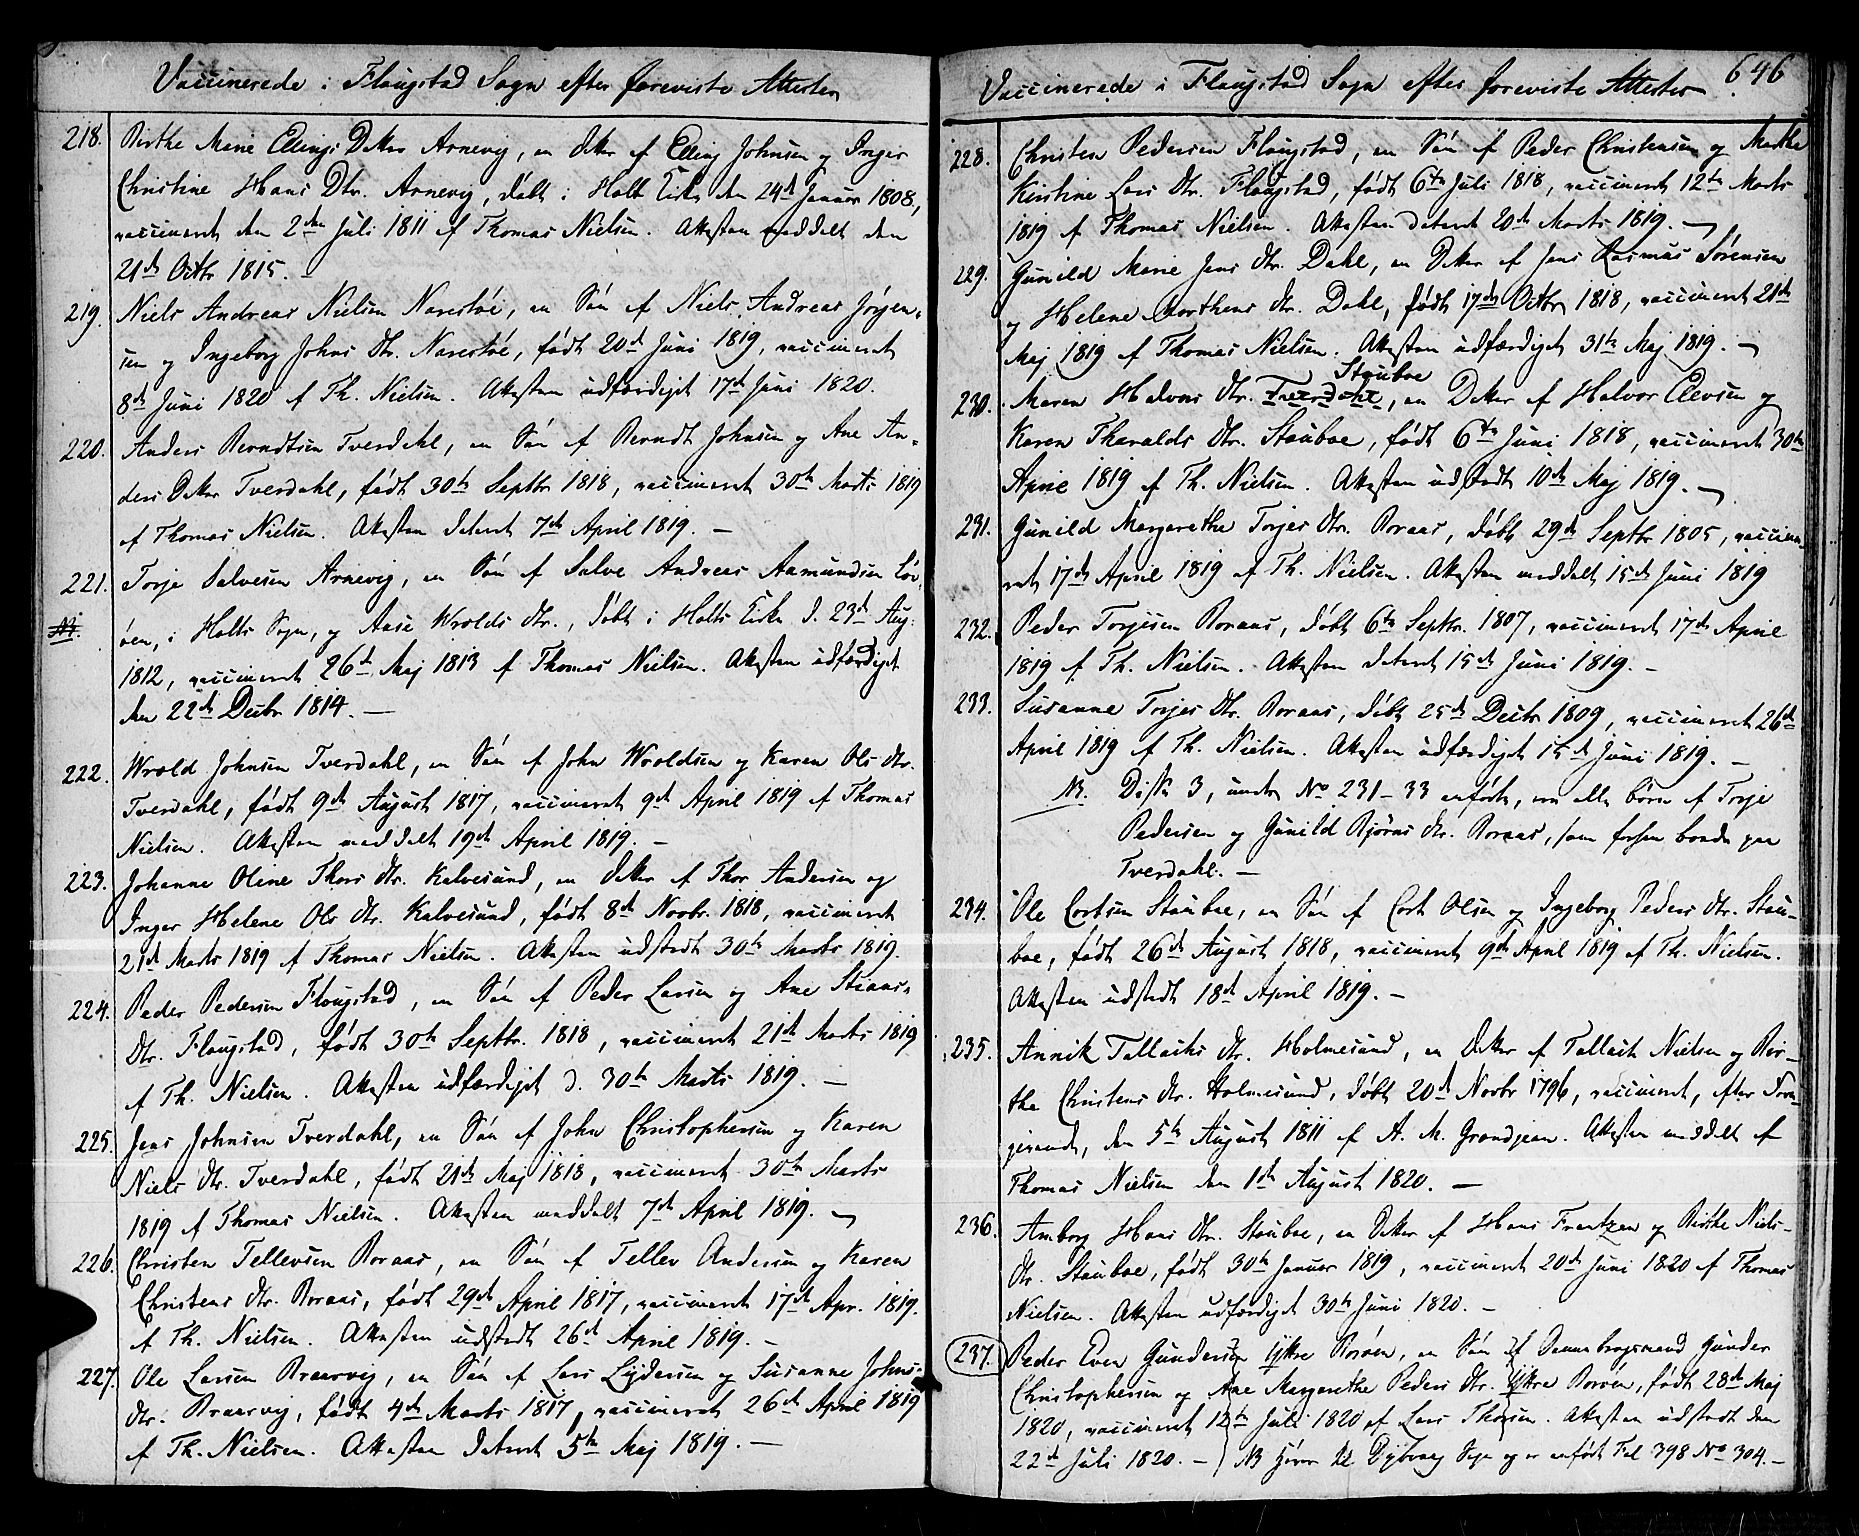 Vaccinerede i Flaugstad Sogn efter foreviste Attester
218. Birthe Marie Ellings Datter Arnevig, en Datter af Elling Johnsen og Inger
Christine Hans Dtr. Arnevig, døbt i Holt Kirke den 24de Januar 1808,
vaccineret den 2den Juli 1811 af Thomas Nielsen. Attesten meddelt den
21de Octbr 1815. –
219. Niels Andreas Nielsen Narestøe, en Søn af Niels Andreas Jørgen-
sen og Ingeborg Johns Dtr. Narestøe, født 20de Juni 1819, vaccineret
8de Juni 1820 af Th. Nielsen. Attesten udfærdiget 17de Juni 1820.
220. Anders Berndtsen Tverdahl, en Søn af Berndt Johnsen og Ane An-
ders Datter Tverdahl, født 30te Septbr 1818, vaccineret 30te Marts 1819
af Thomas Nielsen. Attesten dateret 7de April 1819. –
221. Torje Salvesen Arnevig, en Søn af Salve Andreas Aamundsen Løv-
øen, i Holts Sogn, og Aase Wrolds Dtr., døbt i Holts Kirke d. 23de Aug.
1812, vaccineret 26de Maj 1813 af Thomas Nielsen. Attesten udfærdiget
den 22de Decbr 1814. –
222. Wrold Johnsen Tverdahl, en Søn af John Wroldsen og Karen Ols Dtr.
Tverdahl, født 9de August 1817, vaccineret 9de April 1819 af Thomas
Nielsen. Attesten meddelt 19de April 1819. –
223. Johanne Oline Thors Dtr. Kalvesund, en Datter af Thor Andersen og
Inger Helene Ols Dtr. Kalvesund, født 8de Novbr. 1818, vaccineret
21de Marts 1819 af Thomas Nielsen. Attesten udstedt 30te Marts 1819.
224. Peder Pedersen Flaugstad, en Søn af Peder Larsen og Ane Stians-
Dtr. Flaugstad, født 30te Septbr. 1818, vaccineret 21de Marts 1819
af Th. Nielsen. Attesten udfærdiget d. 30te Marts 1819. –
225. Jens Johnsen Tverdahl, en Søn af John Christophersen og Karen
Niels Dtr. Tverdahl, født 21de Maj 1818, vaccineret 30te Marts
1819 af Thomas Nielsen. Attesten meddelt 7de April 1819. –
226. Christen Tellevsen Boraas, en Søn af Tellev Andersen og Karen
Christens Dtr. Boraas, født 29de April 1817, vaccineret 17de Apr. 1819.
af Th. Nielsen. Attesten udstedt 26de April 1819. –
227. Ole Larsen Braarvig, en Søn af Lars Lydersen og Susanne Johns-
Dtr. Braarvig, født 4de Marts 1817, vaccineret 26de April 1819
af Th. Nielsen. Attesten dateret 5te Maj 1819. –
Vaccinerede i Flaugstad Sogn efter foreviste Attester 646
228. Christen Pedersen Flaugstad, en Søn af Peder Christensen og Marthe
Kirstine Lars Dtr. Flaugstad, født 6te Juli 1818, vaccineret 12te Marts
1819 af Thomas Nielsen. Attesten dateret 20de Marts 1819. –
229. Gunild Marie Jens Dtr. Dahl, en Datter af Jens Rasmus Sørensen
og Helene Morthens Dtr. Dahl, født 17de Octbr 1818, vaccineret 21de
Maj 1819 af Thomas Nielsen. Attesten udfærdiget 31te Maj 1819. –
Stauboe
230. Maren Halvors Dtr. Tverdahl, en Datter af Halvor Elevsen og
Karen Tharalds Dtr. Stauboe, født 6te Juni 1818, vaccineret 30te
April 1819 af Th. Nielsen. Attesten udstedt 10de Maj 1819. –
231. Gunild Margarethe Torjes Dtr. Boraas, døbt 29de Septbr 1805, vaccine-
ret 17de April 1819 af Th. Nielsen. Attesten meddelt 15de Juni 1819
232. Peder Torjesen Boraas, døbt 6te Septbr. 1807, vaccineret 17de April
1819 af Th. Nielsen. Attesten dateret 15de Juni 1819. –
233. Susanne Torjes Dtr. Boraas, døbt 25de Decbr 1809, vaccineret 26de
April 1819 af Th. Nielsen. Attesten udfærdiget 15de Juni 1819. –
NB. Disse 3, under No 231–33 anførte, ere alle børn af Torje
Pedersen og Gunild Bjørns Dtr. Boraas, som forhen boede paa
Tverdahl. –
234. Ole Cortsen Stauboe, en Søn af Cort Olsen og Ingeborg Peders Dtr. Stau-
boe, født 26de August 1818, vaccineret 9de April 1819 af Th. Nielsen.
Attesten udstedt 18de April 1819. –
235. Annik Tallachs Dtr. Holmesund, en Datter af Tallach Nielsen og Bir-
the Christens Dtr. Holmesund, døbt 20de Novbr 1796, vaccineret, efter
givende, den 5te August 1811 af A. M. Grandjean. Attesten meddelt af
Thomas Nielsen den 1ste August 1820. –
236. Amborg Hans Dtr. Stauboe, en Datter af Hans Frantzen og Birthe Niels-
Dtr. Stauboe, født 30te Januar 1819, vaccineret 20de Juni 1820 af Thomas
Nielsen. Attesten udfærdiget 30te Juni 1820. –
237. Peder Even Gundersen Yttre Borøen, en Søn af Dannebrogsmand Gunder
Christophersen og Ane Margarethe Peders Dtr. Yttre Borøen, født 28de Maj
1820, vaccineret 12te Juli 1820 af Lars Thorsen. Attesten udstedt den
22de Juli 1820. – NB hører til Dybvaag Sogn og er anført Fol 398 No 304. –